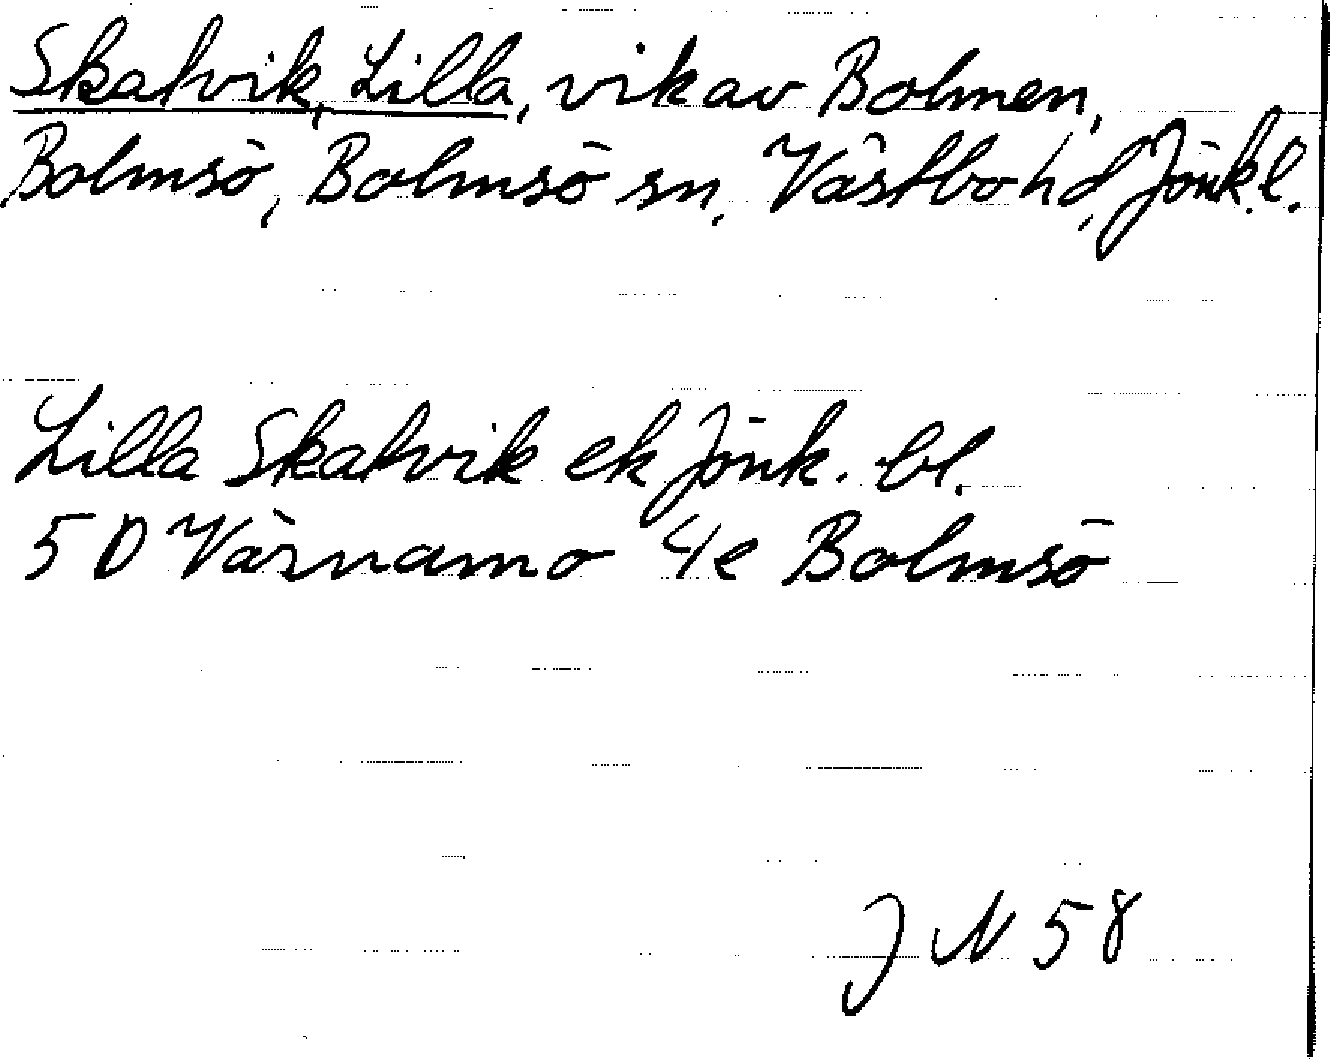 Skalvik, Lilla, vik av Bolmen,
Bolmsö, Bolmsö sn, Västbo hd, Jönk.l.
Lilla Skalvik ek Jönk. bl.
5D Värnamo 4e Bolmsö
JN 58